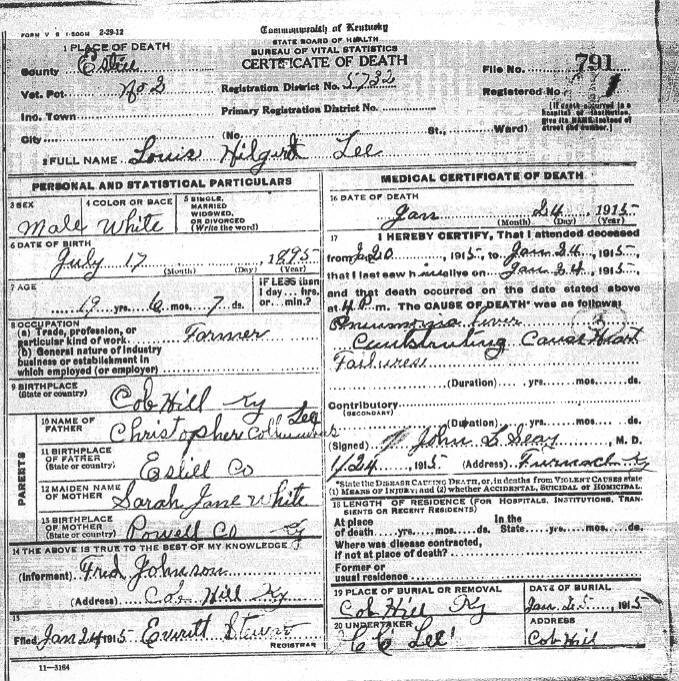 FORM V S 1-500M 2-29-12
Commonwealth of Kentucky
STATE BOARD OF HEALTH
BUREAU OF VITAL STATISTICS
CERTIFICATE OF DEATH
1 PLACE OF DEATH
County Estill
Vot. Pct. No 2
Inc. Town
City
Registration District No. 5732
Primary Registration District No.
(No. St., Ward)
File No. 791
Registered No. 1
[If death occurred in a hospital or institution, give its NAME instead of street and number.]
2 FULL NAME Louis Hilgert Lee
PERSONAL AND STATISTICAL PARTICULARS
3 SEX Male
4 COLOR OR RACE White
5 SINGLE, MARRIED WIDOWED, OR DIVORCED (Write the word)
6 DATE OF BIRTH
July 17, 1895
(Month) (Day) (Year)
7 AGE
19 yrs. 6 mos. 7 ds.
If LESS than 1 day... hrs. or... min.?
8 OCCUPATION
(a) Trade, profession, or particular kind of work Farmer
(b) General nature of industry business or establishment in which employed (or employer)
9 BIRTHPLACE
(State or country)
Cob Hill Ky
PARENTS
10 NAME OF FATHER Christopher Lee
11 BIRTHPLACE OF FATHER
(State or country) Estill Co
12 MAIDEN NAME OF MOTHER Sarah Jane White
13 BIRTHPLACE OF MOTHER
(State or country) Powell Co Ky
14 THE ABOVE IS TRUE TO THE BEST OF MY KNOWLEDGE
(Informant) Fred Johnson
(Address) Cob Hill Ky
15
Filed Jan 24 1915 Everitt
REGISTRAR
11-3184
MEDICAL CERTIFICATE OF DEATH
16 DATE OF DEATH
Jan 24 1915
(Month) (Day) (Year)
17 I HEREBY CERTIFY, That I attended deceased
from Ja 20, 1915, to Jan 24, 1915,
that I last saw him alive on Jan 24, 1915,
and that death occurred on the date stated above
at 4 P m. The CAUSE OF DEATH* was as follows:
Pneumonia Fever
Cause Heart
Failure
(Duration) yrs. mos. ds.
Contributory
(SECONDARY)
(Duration) yrs. mos. ds.
(Signed) John, M. D.
1/24, 1915 (Address) Ky
*State the DISEASE CAUSING DEATH, or, in deaths from VIOLENT CAUSES state (1) MEANS OF INJURY; and (2) whether ACCIDENTAL, SUICIDAL or HOMICIDAL.
18 LENGTH OF RESIDENCE (FOR HOSPITALS, INSTITUTIONS, TRANSIENTS OR RECENT RESIDENTS)
At place of death yrs. mos. ds. In the State yrs. mos. ds.
Where was disease contracted, if not at place of death?
Former or usual residence
19 PLACE OF BURIAL OR REMOVAL
Cob Hill Ky
DATE OF BURIAL
Jan 25, 1915
20 UNDERTAKER
C C Lee
ADDRESS
Cob Hill